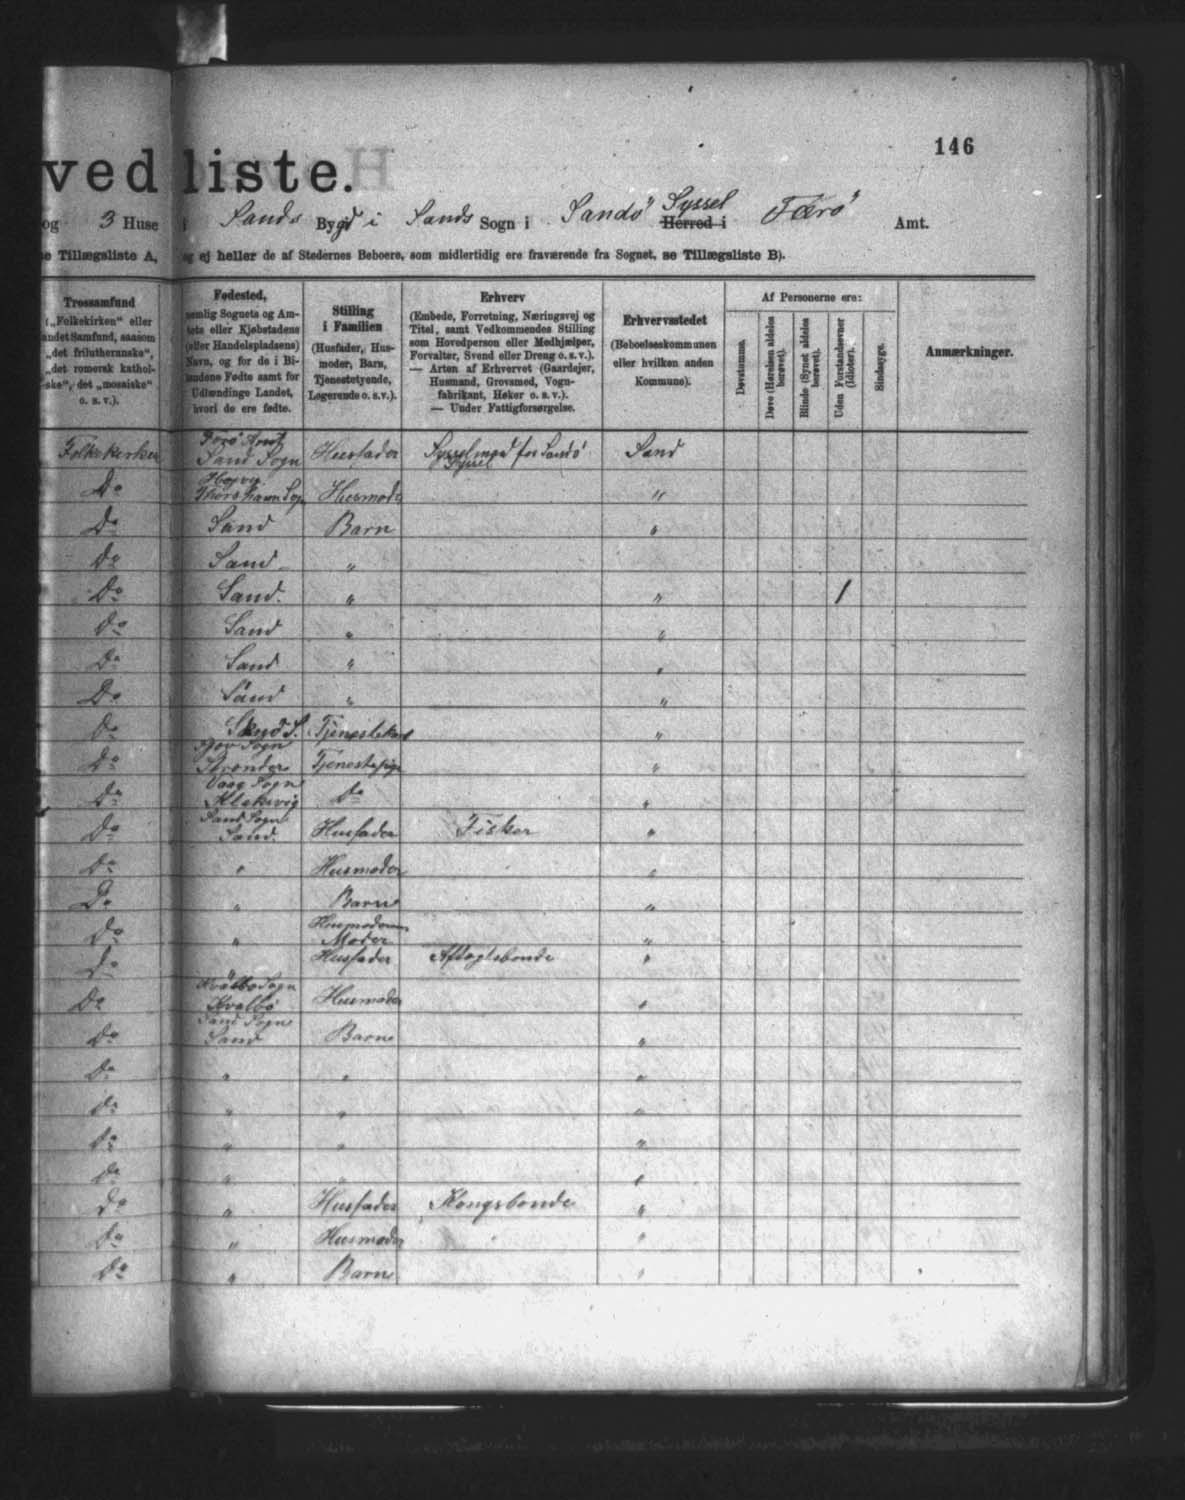 146
ved liste.
og 3 Huse i Sands Bygd i Sands Sogn i Sandö Syssel Herred i Færö Amt.
se Tillægsliste A, og ej heller de af Stedernes Beboere, som midlertidig ere fraværende fra Sognet, se Tillægsliste B).
Trossamfund
(„Folkekirken" eller
andet Samfund, saasom
„det frilutheranske",
„det romersk kathol-
ske", det „mosaiske"
o. s. v.).
Fødested,
nemlig Sognets og Am-
tets eller Kjøbstadens
(eller Handelspladsens)
Navn, og for de i Bi-
landene Fødte samt for
Udlændinge Landet,
hvori de ere fødte.
Stilling
i Familien
(Husfader, Hus-
moder, Barn,
Tjenestetyende,
Logerende o. s. v.).
Erhverv
(Embede, Forretning, Næringsvej og
Titel, samt Vedkommendes Stilling
som Hovedperson eller Medhjælper,
Forvalter, Svend eller Dreng o. s. v.).
— Arten af Erhvervet (Gaardejer,
Husmand, Grovsmed, Vogn-
fabrikant, Høker o. s. v.).
— Under Fattigforsørgelse.
Erhvervsstedet
(Beboelseskommunen
eller hvilken anden
Kommune).
Af Personerne ere:
Døvstumme.
Døve (Hørelsen aldeles
berøvet).
Blinde (Synet aldeles
berøvet).
Uden Forstandsevner
(Idioter).
Sindssyge.
Anmærkninger.
Færö Amt
Folkekirken Sand Sogn Husfader Sysselmand for Sandö Sand
Syssel
Do Thorshavn Husmoder "
Do Sand Barn "
Do Sand "
Do Sand. " " 1
Do Sand " "
Do Sand " "
Do Sand " "
Do Tjenestekarl "
Sogn
Do Strender Tjenestepige "
Sogn
Do Klaksvig Do "
Sand Sogn
Do Sand. Husfader Fisker "
Do " Husmoder "
Do " Barn "
Husmoderens
Do " Moder "
Do " Husfader Aftægtsbonde "
Kvalbö Sogn
Do Kvalbö Husmoder "
Sand Sogn
Do Sand Barn "
Do " " "
Do " " "
Do " " "
Do " "
Do " Husfader Kongsbonde "
Do " Husmoder "
Do " Barn "